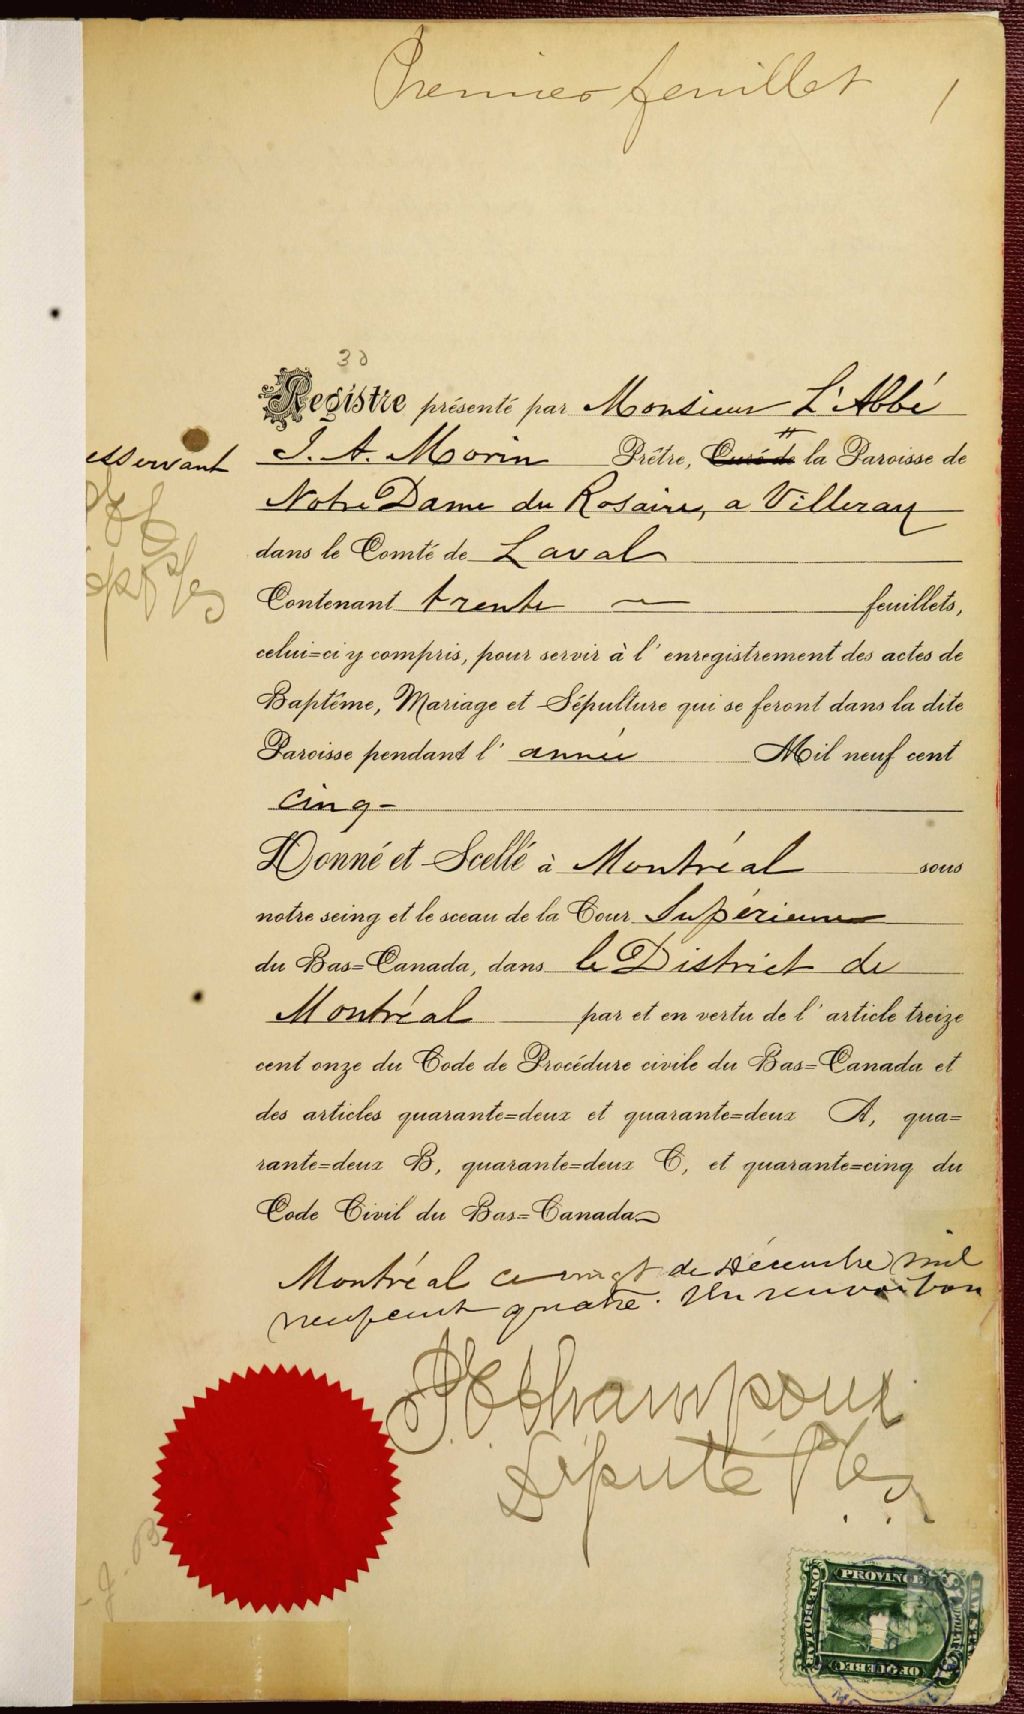 Premier feuillet 1
30
Registre présenté par Monsieur L'Abbé
esservant J. A. Morin Prêtre, Curé de la Paroisse de
Notre Dame du Rosaire, a Villeray
dans le Comté de Laval
Contenant trente feuillets,
celui=ci y compris, pour servir à l'enregistrement des actes de
Baptême, Mariage et Sépulture qui se feront dans la dite
Paroisse pendant l'année Mil neuf cent
cinq-
Donné et Scellé à Montréal sous
notre seing et le sceau de la Cour Supérieure
du Bas=Canada, dans le District de
Montréal par et en vertu de l'article treize
cent onze du Code de Procédure civile du Bas=Canada et
des articles quarante=deux et quarante=deux A, qua=
rante=deux B, quarante=deux C, et quarante=cinq du
Code Civil du Bas=Canada
Montréal ce vingt de Décembre mil
neuf cent quatre. Un renvoi bon
Champoux
Député P
PROVINCE
OF QUEBEC